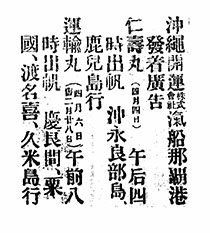 沖繩開運株式会社汽船那覇港
發着廣告
仁壽丸(四月四日)午后四
時出帆 沖永良部島
鹿兒島行
運輸丸(四月六日)(旧二月廿八日)午前八
時出帆 慶良間、粟
國、渡名喜、久米島行